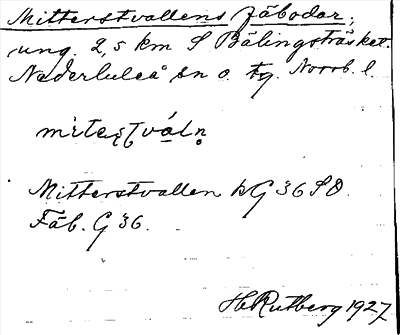 Mitterstvallens fäbodar,
ung. 2,5 km S Bälingsträsket.
Nederluleå sn o. tg. Norrb. l.
Mitterstvallen kG 36 SO.
Fäb. G 36.
H Rutberg 1927